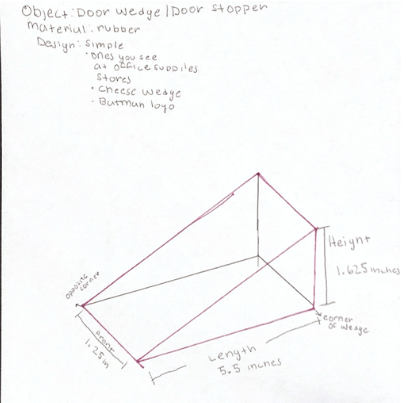 Object: Door wedge/Door stopper
material: rubber
Design: simple
• ones you see
at office supplies
stores
• Cheese wedge
• Batman logo
Height
1.625 inches
opposing
corner
front
1.25 in
corner
of wedge
Length
5.5 inches